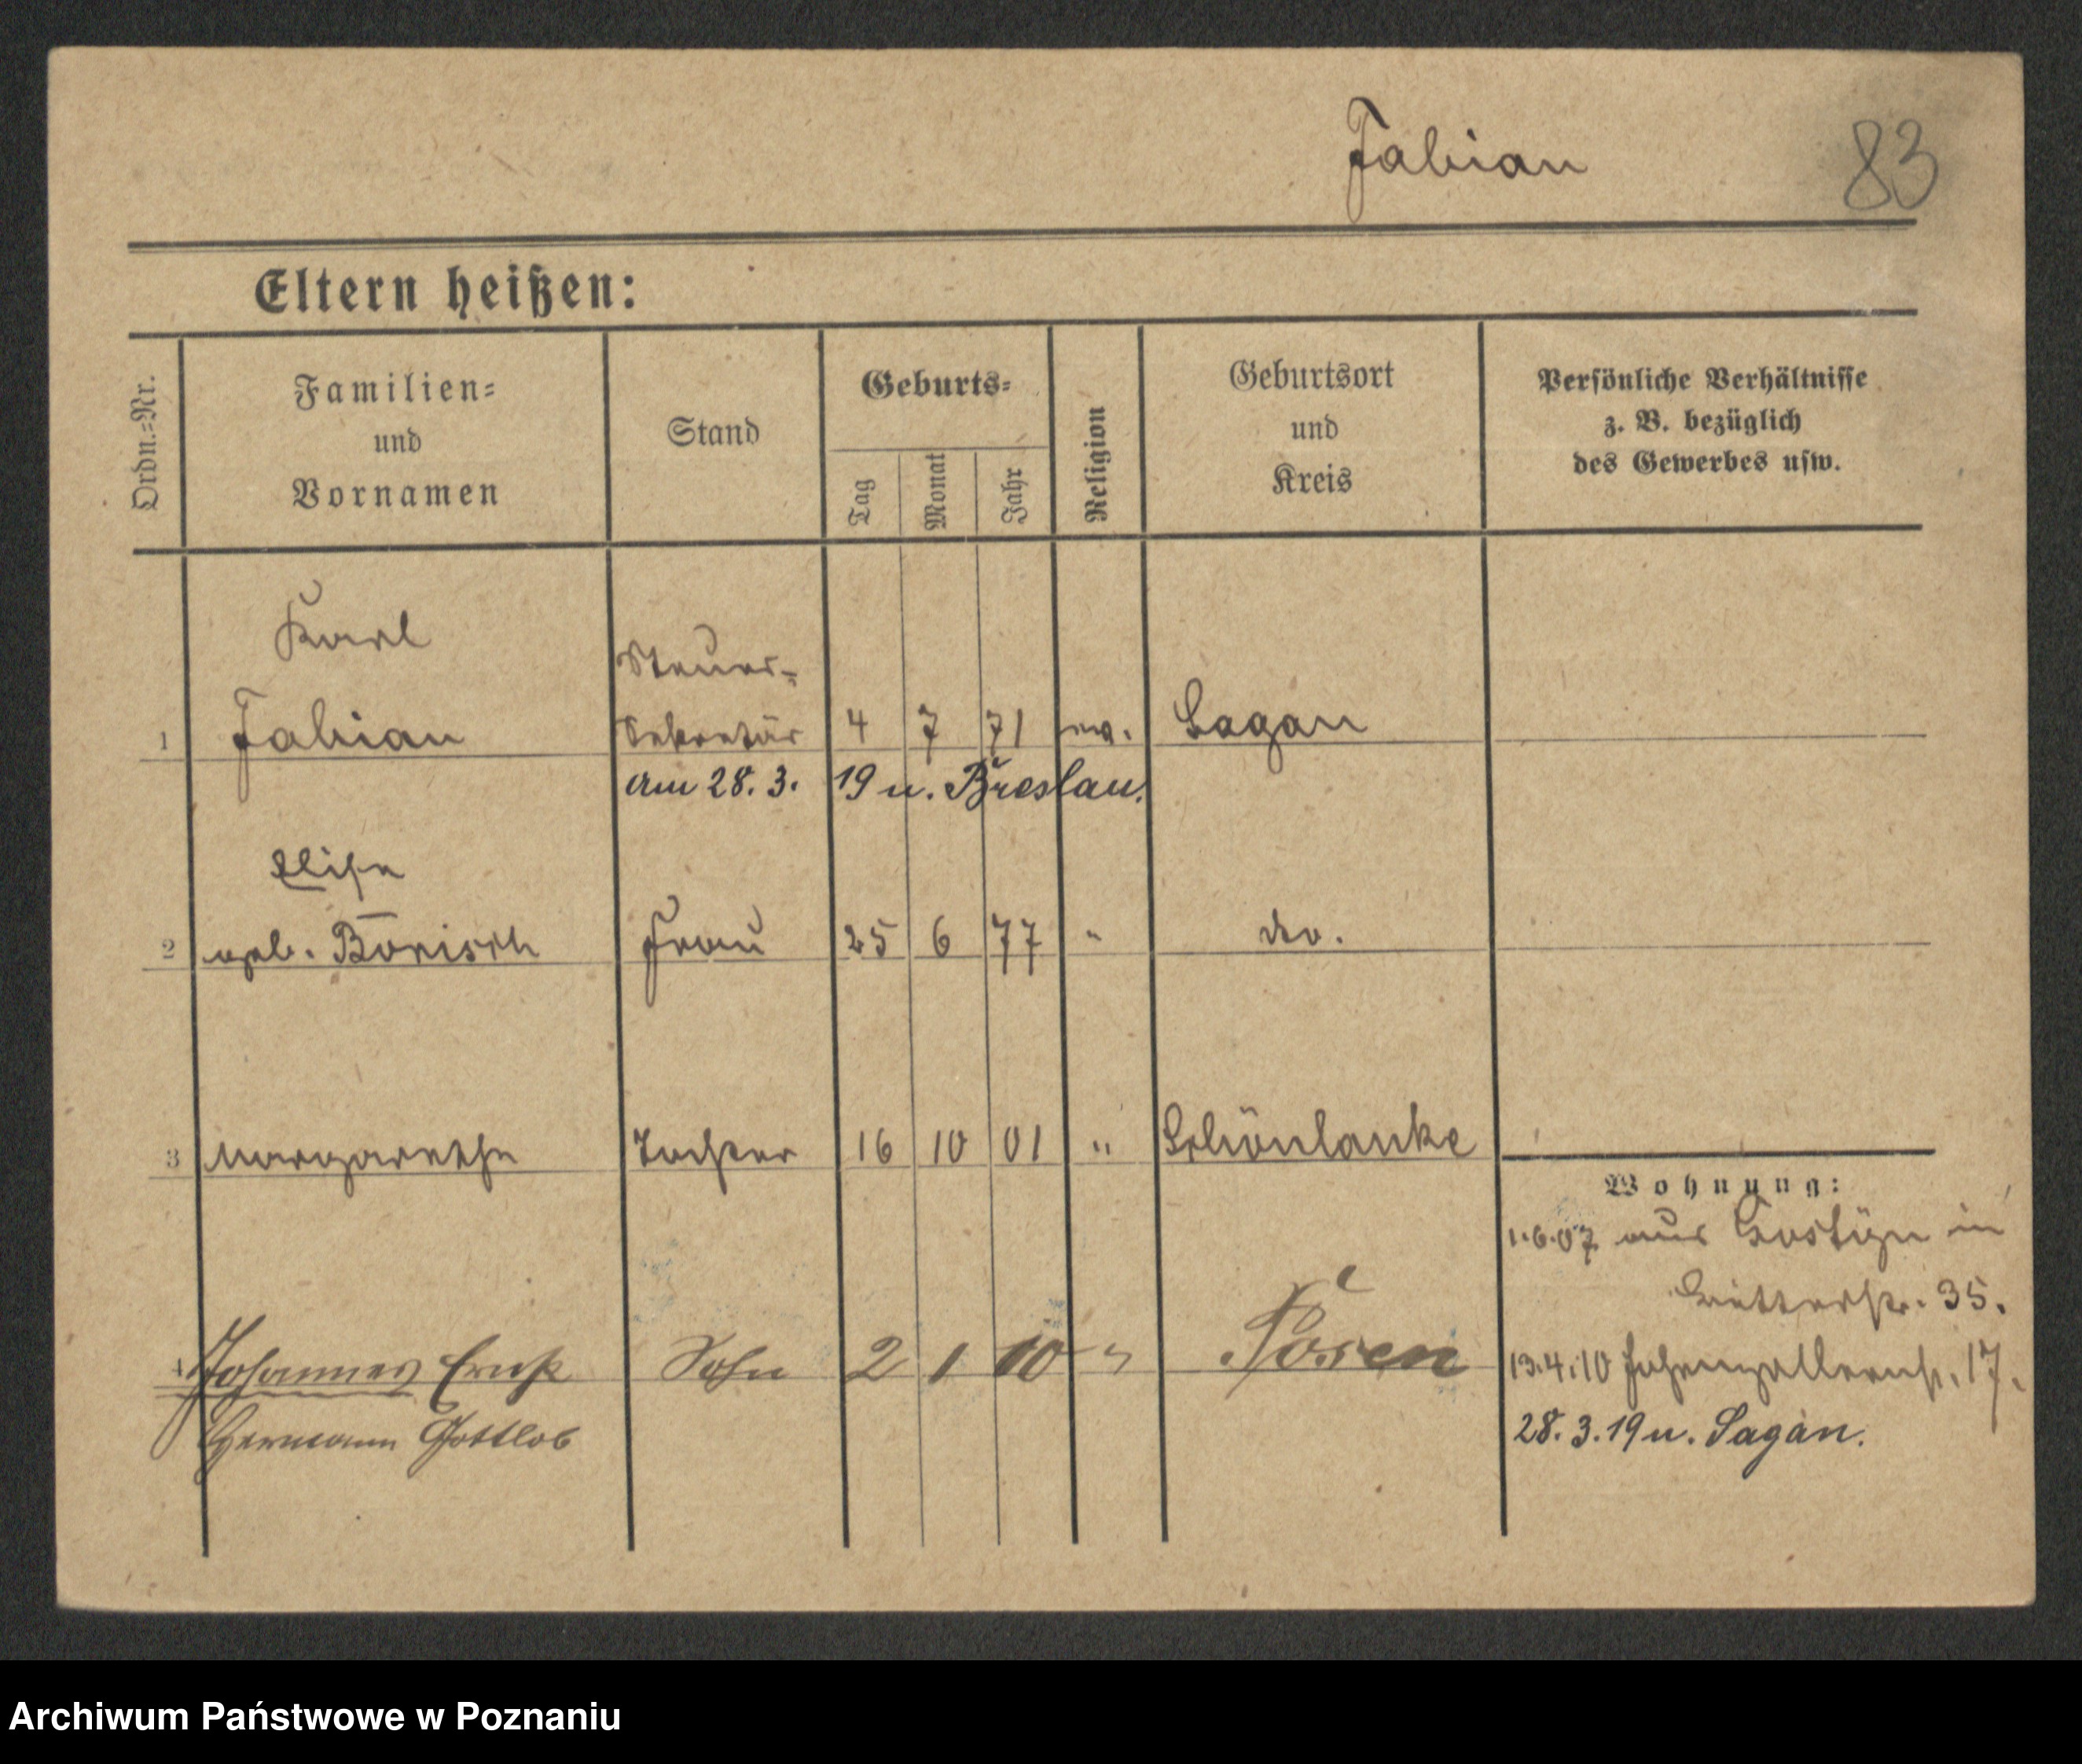 Fabian 83
Eltern heißen:
Ordn.=Nr.
Familien=
und
Vornamen
Stand
Geburts=
Tag
Monat
Jahr
Religion
Geburtsort
und
Kreis
Persönliche Verhältnisse
z. B. bezüglich
des Gewerbes usw.
Karl
Steuer=
1 Fabian Sekretär 4 7 71 ev. Sagan
am 28. 3. 19 n. Breslau.
Elise
2 geb. Bönisch Frau 25 6 77 " do.
3 Margarethe Tochter 16 10 01 " Schönlanke
Wohnung:
1.6.07 aus Gostyn in
Ritterstr. 35.
4 Johannes Ernst Sohn 2 1 10 " Posen
13.4.10 Hohenzollernstr. 17.
Hermann Gottlob
28. 3. 19 n. Sagan.
Archiwum Państwowe w Poznaniu